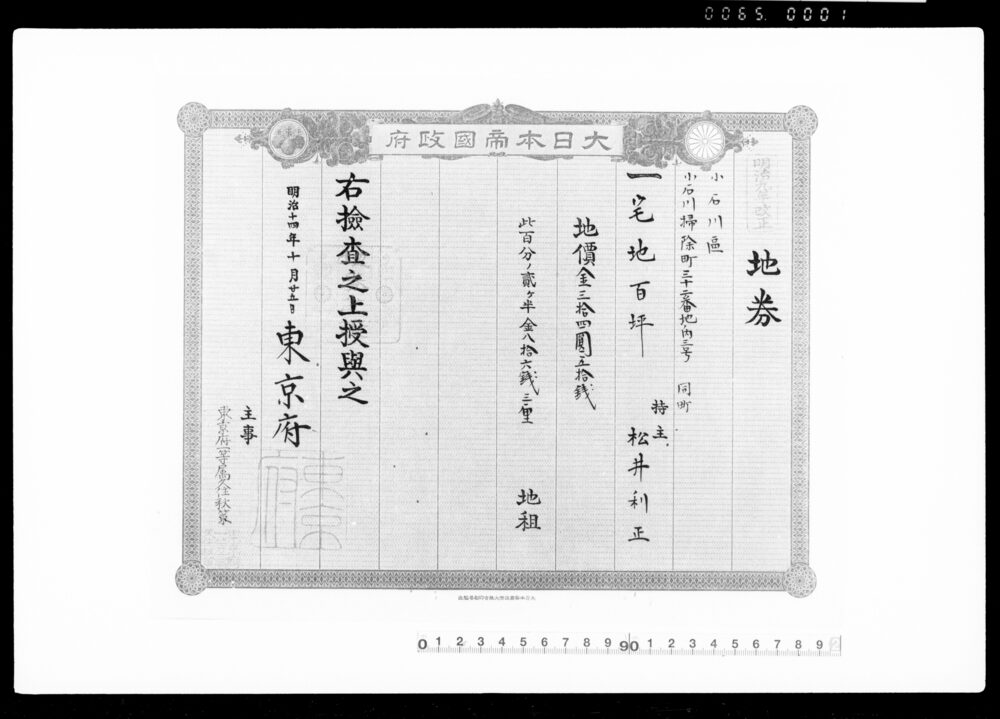 0065. 0001
大日本帝國政府
明治九年改正
地券
小石川區
小石川掃除町三十二番地ノ内三号 同町
一宅地百坪 持主 松井利正
地價金三拾四圓五拾錢
此百分ノ貳ヶ半金八拾六錢三厘 地租
右撿査之上授與之
明治十四年十月廿五日 東京府
主事
東京府一等属
0 1 2 3 4 5 6 7 8 9 90 1 2 3 4 5 6 7 8 9